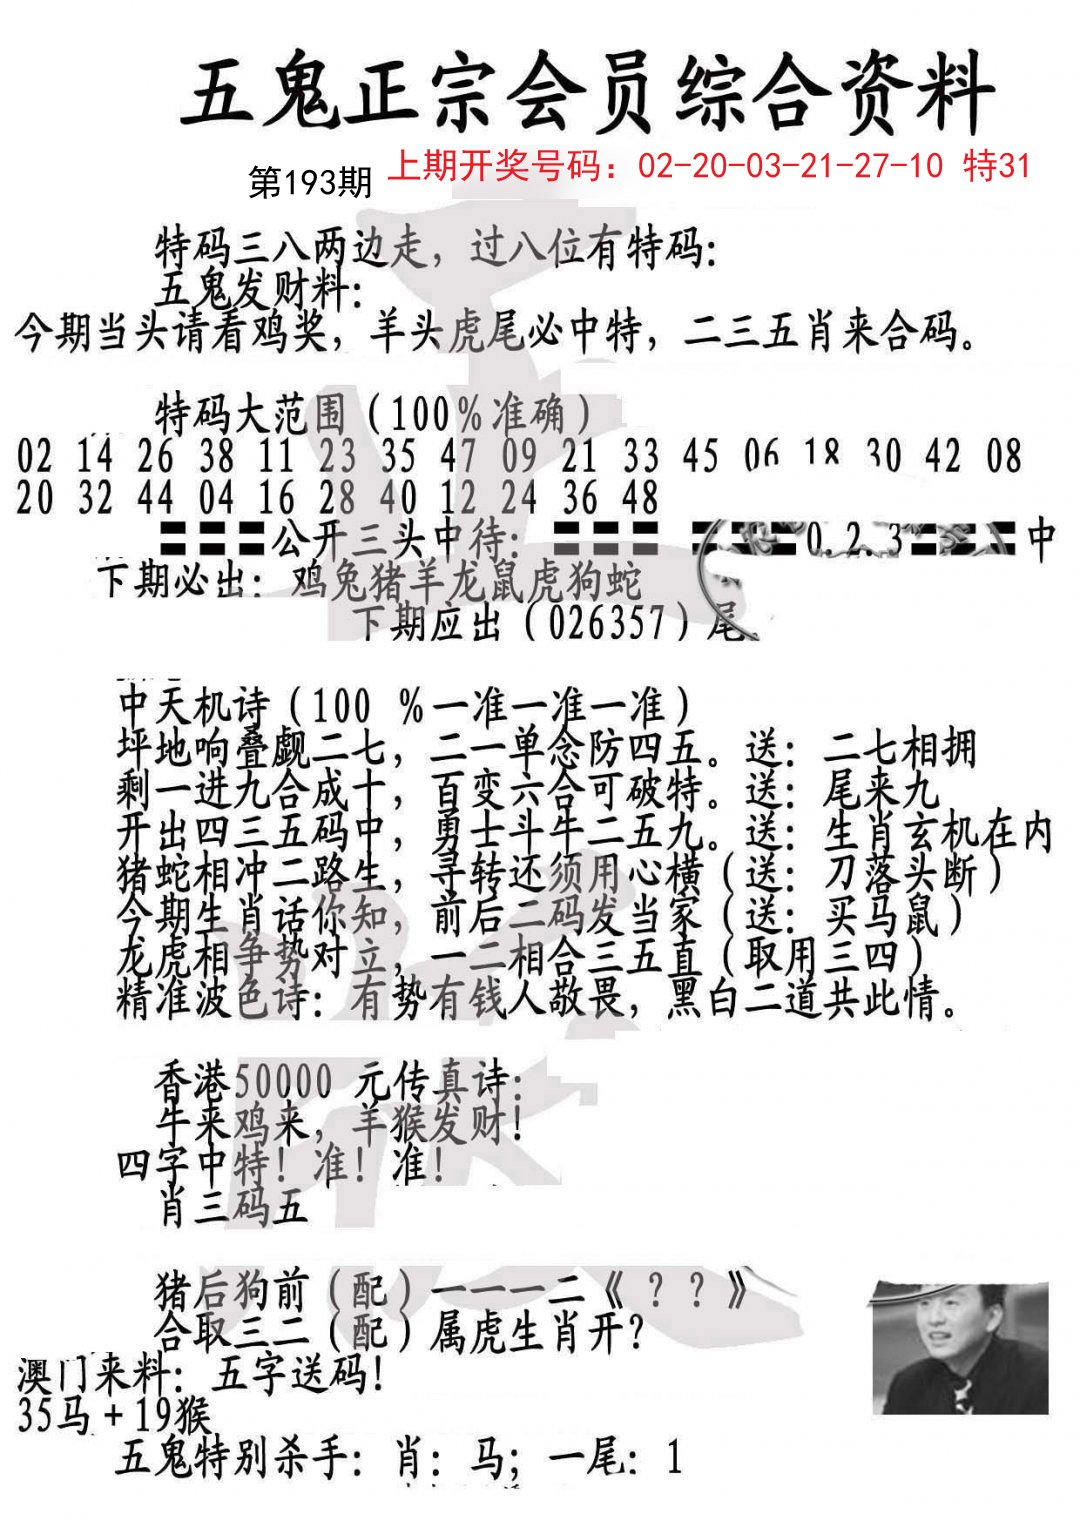 五鬼正宗会员综合资料
第193期 上期开奖号码：02-20-03-21-27-10 特31
特码三八两边走，过八位有特码：
五鬼发财料：
今期当头请看鸡奖，羊头虎尾必中特，二三五肖来合码。
特码大范围（100%准确）
02 14 26 38 11 23 35 47 09 21 33 45 06 18 30 42 08
20 32 44 04 16 28 40 12 24 36 48
公开三头中待： 0.2.3 中
下期必出：鸡兔猪羊龙鼠虎狗蛇
下期应出（026357）尾.
中天机诗（100 %一准一准一准）
坪地响叠觑二七，二一单念防四五。送：二七相拥
剩一进九合成十，百变六合可破特。送：尾来九
开出四三五码中，勇士斗牛二五九。送：生肖玄机在内
猪蛇相冲二路生，寻转还须用心横（送：刀落头断）
今期生肖话你知，前后二码发当家（送：买马鼠）
龙虎相争势对立，一二相合三五直（取用三四）
精准波色诗：有势有钱人敬畏，黑白二道共此情。
香港50000 元传真诗：
牛来鸡来，羊猴发财！
四字中特！准！准！
肖三码五
猪后狗前（配）一一一二《？？》
合取三二（配）属虎生肖开？
澳门来料：五字送码！
35马+19猴
五鬼特别杀手：肖：马；一尾：1